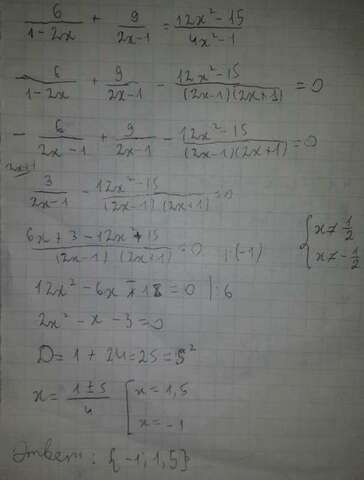 6/(1-2x) + 9/(2x-1) = (12x²-15)/(4x²-1)
6/(1-2x) + 9/(2x-1) - (12x²-15)/((2x-1)(2x+1)) = 0
- 6/(2x-1) + 9/(2x-1) - (12x²-15)/((2x-1)(2x+1)) = 0
2x+1
3/(2x-1) - (12x²-15)/((2x-1)(2x+1)) = 0
(6x+3-12x²+15)/((2x-1)(2x+1)) = 0 | · (-1)
{ x≠1/2
x≠-1/2
12x²-6x-18=0 | :6
2x²-x-3=0
D=1+24=25=5²
x=(1±5)/4 [ x=1,5
x=-1
Ответ: {-1; 1,5}